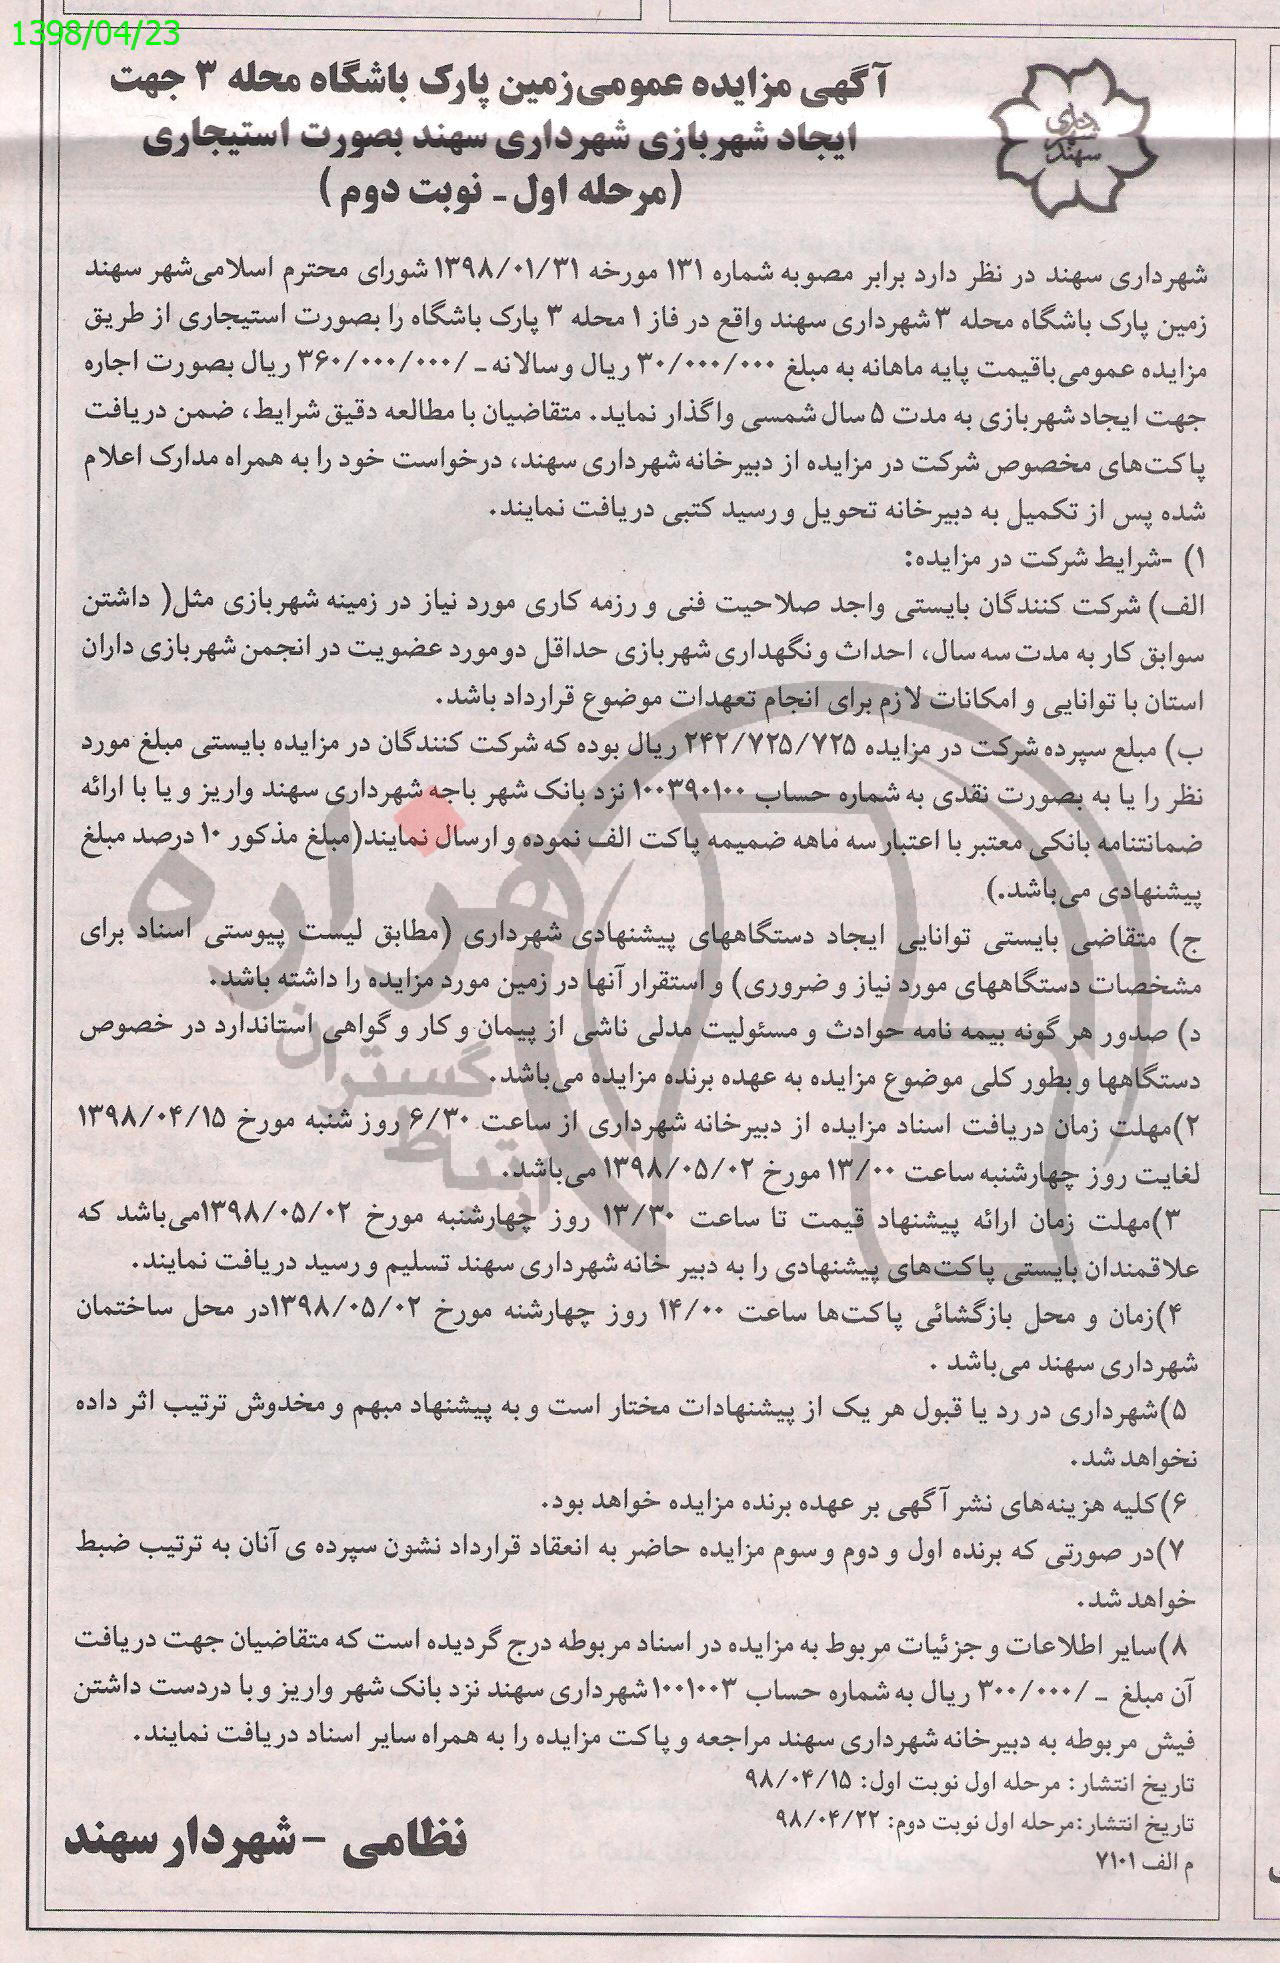 1398/04/23
شهرداری سهند
آگهی مزایده عمومی‌زمین پارک باشگاه محله ۳ جهت
ایجاد شهربازی شهرداری سهند بصورت استیجاری
(مرحله اول ـ نوبت دوم)
شهرداری سهند در نظر دارد برابر مصوبه شماره ۱۳۱ مورخه ۱۳۹۸/۰۱/۳۱ شورای محترم اسلامی‌شهر سهند
زمین پارک باشگاه محله ۳ شهرداری سهند واقع در فاز ۱ محله ۳ پارک باشگاه را بصورت استیجاری از طریق
مزایده عمومی‌باقیمت پایه ماهانه به مبلغ ۳۰/۰۰۰/۰۰۰ ریال و سالانه ـ /۳۶۰/۰۰۰/۰۰۰ ریال بصورت اجاره
جهت ایجاد شهربازی به مدت ۵ سال شمسی واگذار نماید. متقاضیان با مطالعه دقیق شرایط، ضمن دریافت
پاکت‌های مخصوص شرکت در مزایده از دبیرخانه شهرداری سهند، درخواست خود را به همراه مدارک اعلام
شده پس از تکمیل به دبیرخانه تحویل و رسید کتبی دریافت نمایند.
۱) -شرایط شرکت در مزایده:
الف) شرکت کنندگان بایستی واجد صلاحیت فنی و رزمه کاری مورد نیاز در زمینه شهربازی مثل( داشتن
سوابق کار به مدت سه سال، احداث و نگهداری شهربازی حداقل دو مورد عضویت در انجمن شهربازی داران
استان با توانایی و امکانات لازم برای انجام تعهدات موضوع قرارداد باشد.
ب) مبلغ سپرده شرکت در مزایده ۲۴۲/۷۲۵/۷۲۵ ریال بوده که شرکت کنندگان در مزایده بایستی مبلغ مورد
نظر را یا به بصورت نقدی به شماره حساب ۱۰۰۳۹۰۱۰۰ نزد بانک شهر باجه شهرداری سهند واریز و یا با ارائه
ضمانتنامه بانکی معتبر با اعتبار سه ماهه ضمیمه پاکت الف نموده و ارسال نمایند(مبلغ مذکور ۱۰ درصد مبلغ
پیشنهادی می‌باشد.)
ج) متقاضی بایستی توانایی ایجاد دستگاههای پیشنهادی شهرداری (مطابق لیست پیوستی اسناد برای
مشخصات دستگاههای مورد نیاز و ضروری) و استقرار آنها در زمین مورد مزایده را داشته باشد.
د) صدور هر گونه بیمه نامه حوادث و مسئولیت مدلی ناشی از پیمان و کار و گواهی استاندارد در خصوص
دستگاهها و بطور کلی موضوع مزایده به عهده برنده مزایده می‌باشد.
۲)مهلت زمان دریافت اسناد مزایده از دبیرخانه شهرداری از ساعت ۶/۳۰ روز شنبه مورخ ۱۳۹۸/۰۴/۱۵
لغایت روز چهارشنبه ساعت ۱۳/۰۰ مورخ ۱۳۹۸/۰۵/۰۲ می‌باشد.
۳)مهلت زمان ارائه پیشنهاد قیمت تا ساعت ۱۳/۳۰ روز چهارشنبه مورخ ۱۳۹۸/۰۵/۰۲می‌باشد که
علاقمندان بایستی پاکت‌های پیشنهادی را به دبیر خانه شهرداری سهند تسلیم و رسید دریافت نمایند.
۴)زمان و محل بازگشائی پاکت‌ها ساعت ۱۴/۰۰ روز چهارشنه مورخ ۱۳۹۸/۰۵/۰۲در محل ساختمان
شهرداری سهند می‌باشد .
۵)شهرداری در رد یا قبول هر یک از پیشنهادات مختار است و به پیشنهاد مبهم و مخدوش ترتیب اثر داده
نخواهد شد.
۶)کلیه هزینه‌های نشر آگهی بر عهده برنده مزایده خواهد بود.
۷)در صورتی که برنده اول و دوم و سوم مزایده حاضر به انعقاد قرارداد نشون سپرده ی آنان به ترتیب ضبط
خواهد شد.
۸)سایر اطلاعات و جزئیات مربوط به مزایده در اسناد مربوطه درج گردیده است که متقاضیان جهت دریافت
آن مبلغ ـ /۳۰۰/۰۰۰ ریال به شماره حساب ۱۰۰۱۰۰۳ شهرداری سهند نزد بانک شهر واریز و با دردست داشتن
فیش مربوطه به دبیرخانه شهرداری سهند مراجعه و پاکت مزایده را به همراه سایر اسناد دریافت نمایند.
تاریخ انتشار: مرحله اول نوبت اول: ۹۸/۰۴/۱۵
تاریخ انتشار:مرحله اول نوبت دوم: ۹۸/۰۴/۲۲
م الف ۷۱۰۱
نظامی - شهردار سهند
هزاره
گستران
ارتباط